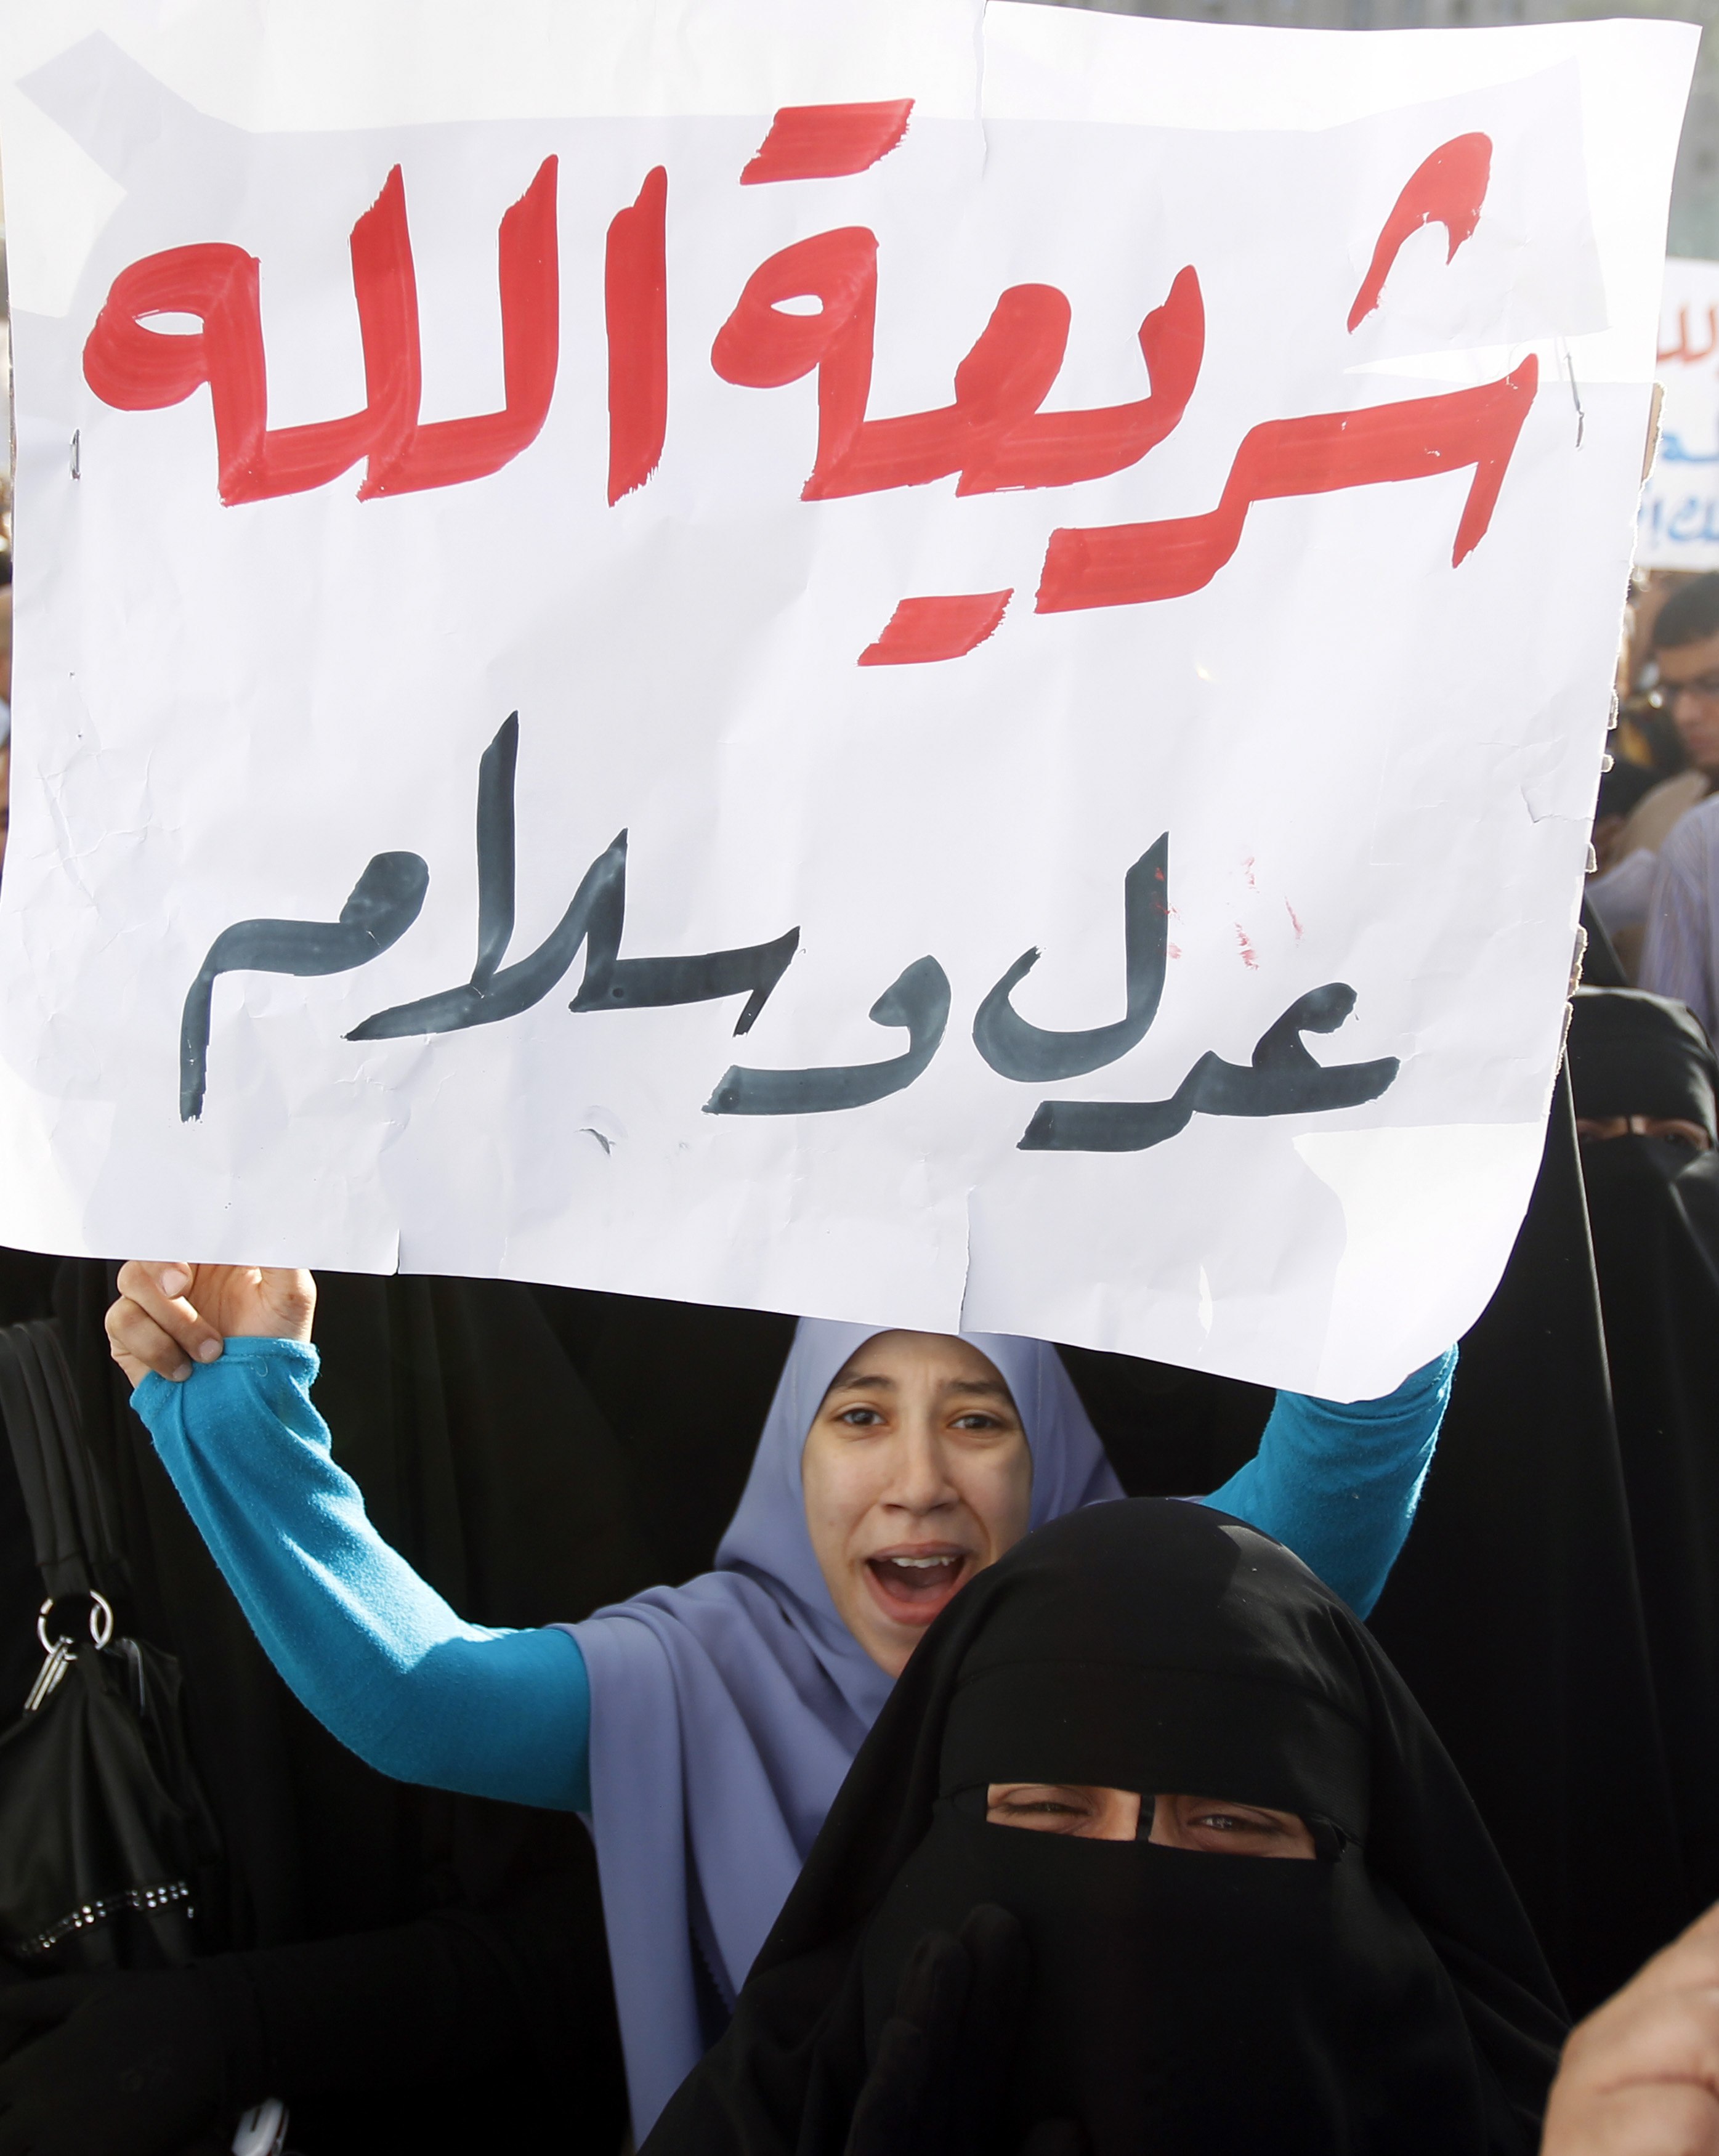 شريعة الله
عدل وسلام